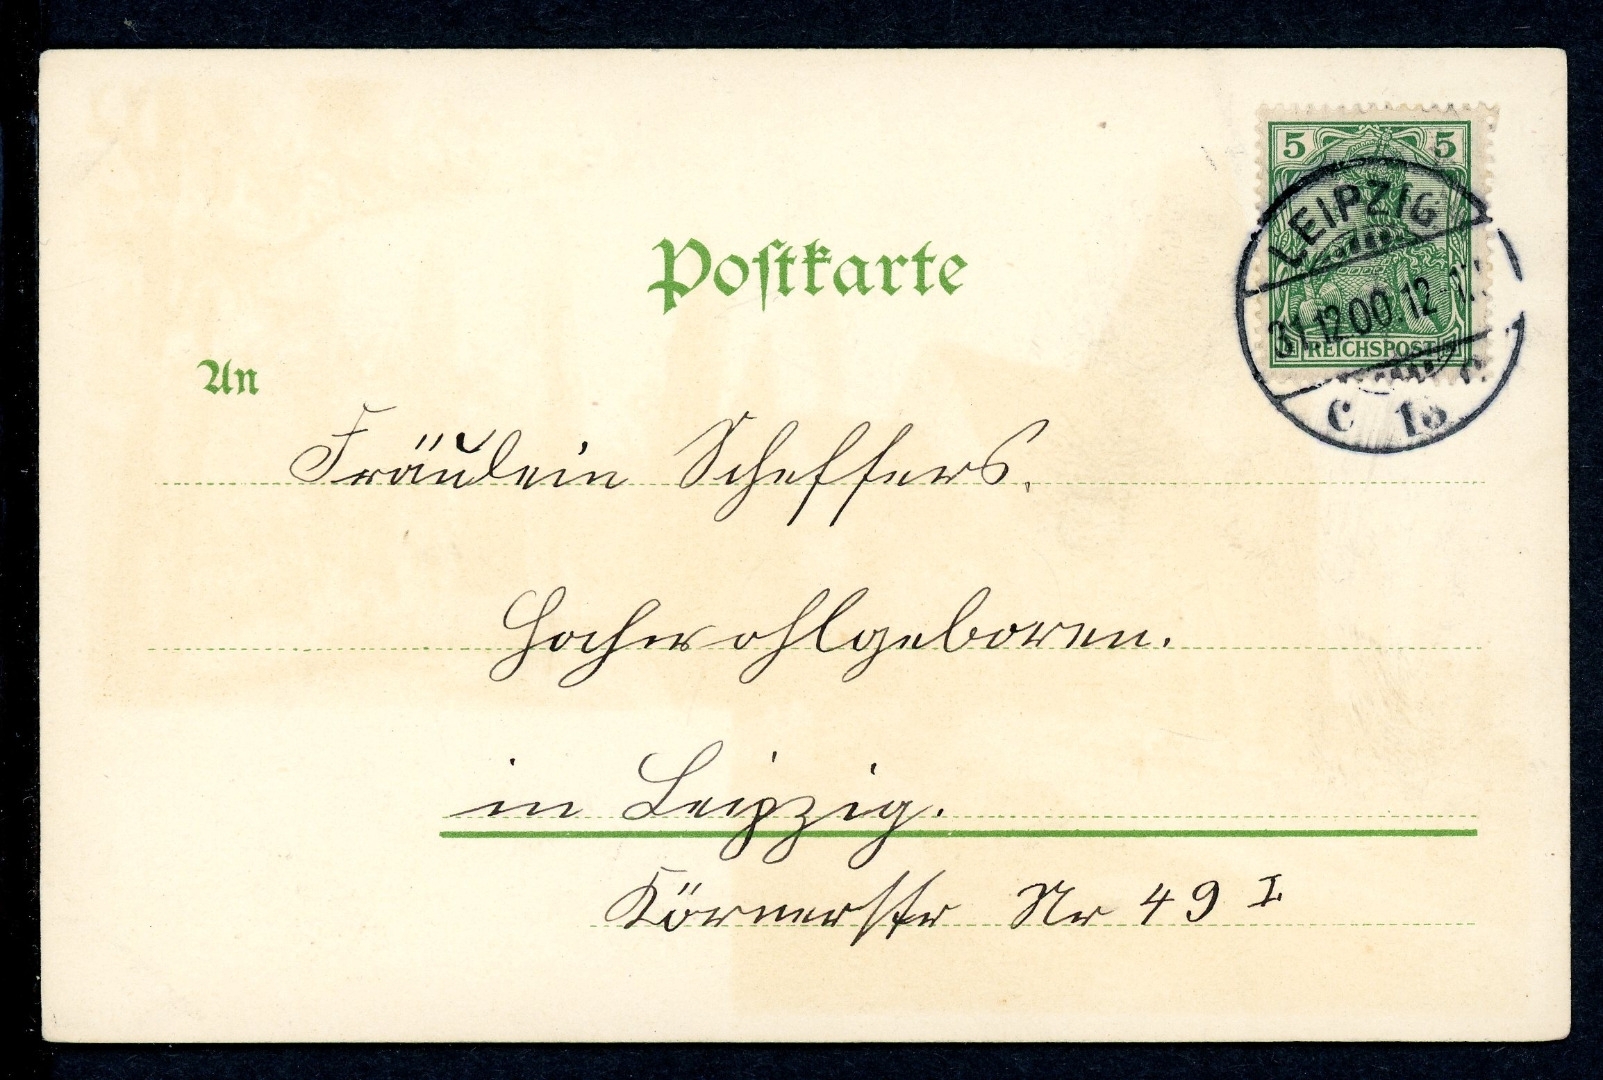 5 5
LEIPZIG
31.12 00.12-1
REICHSPOST
C 13
Postkarte
An
Fräulein Scheffers.
Hochwohlgeboren.
in Leipzig.
Körnerstr Nr 49 I